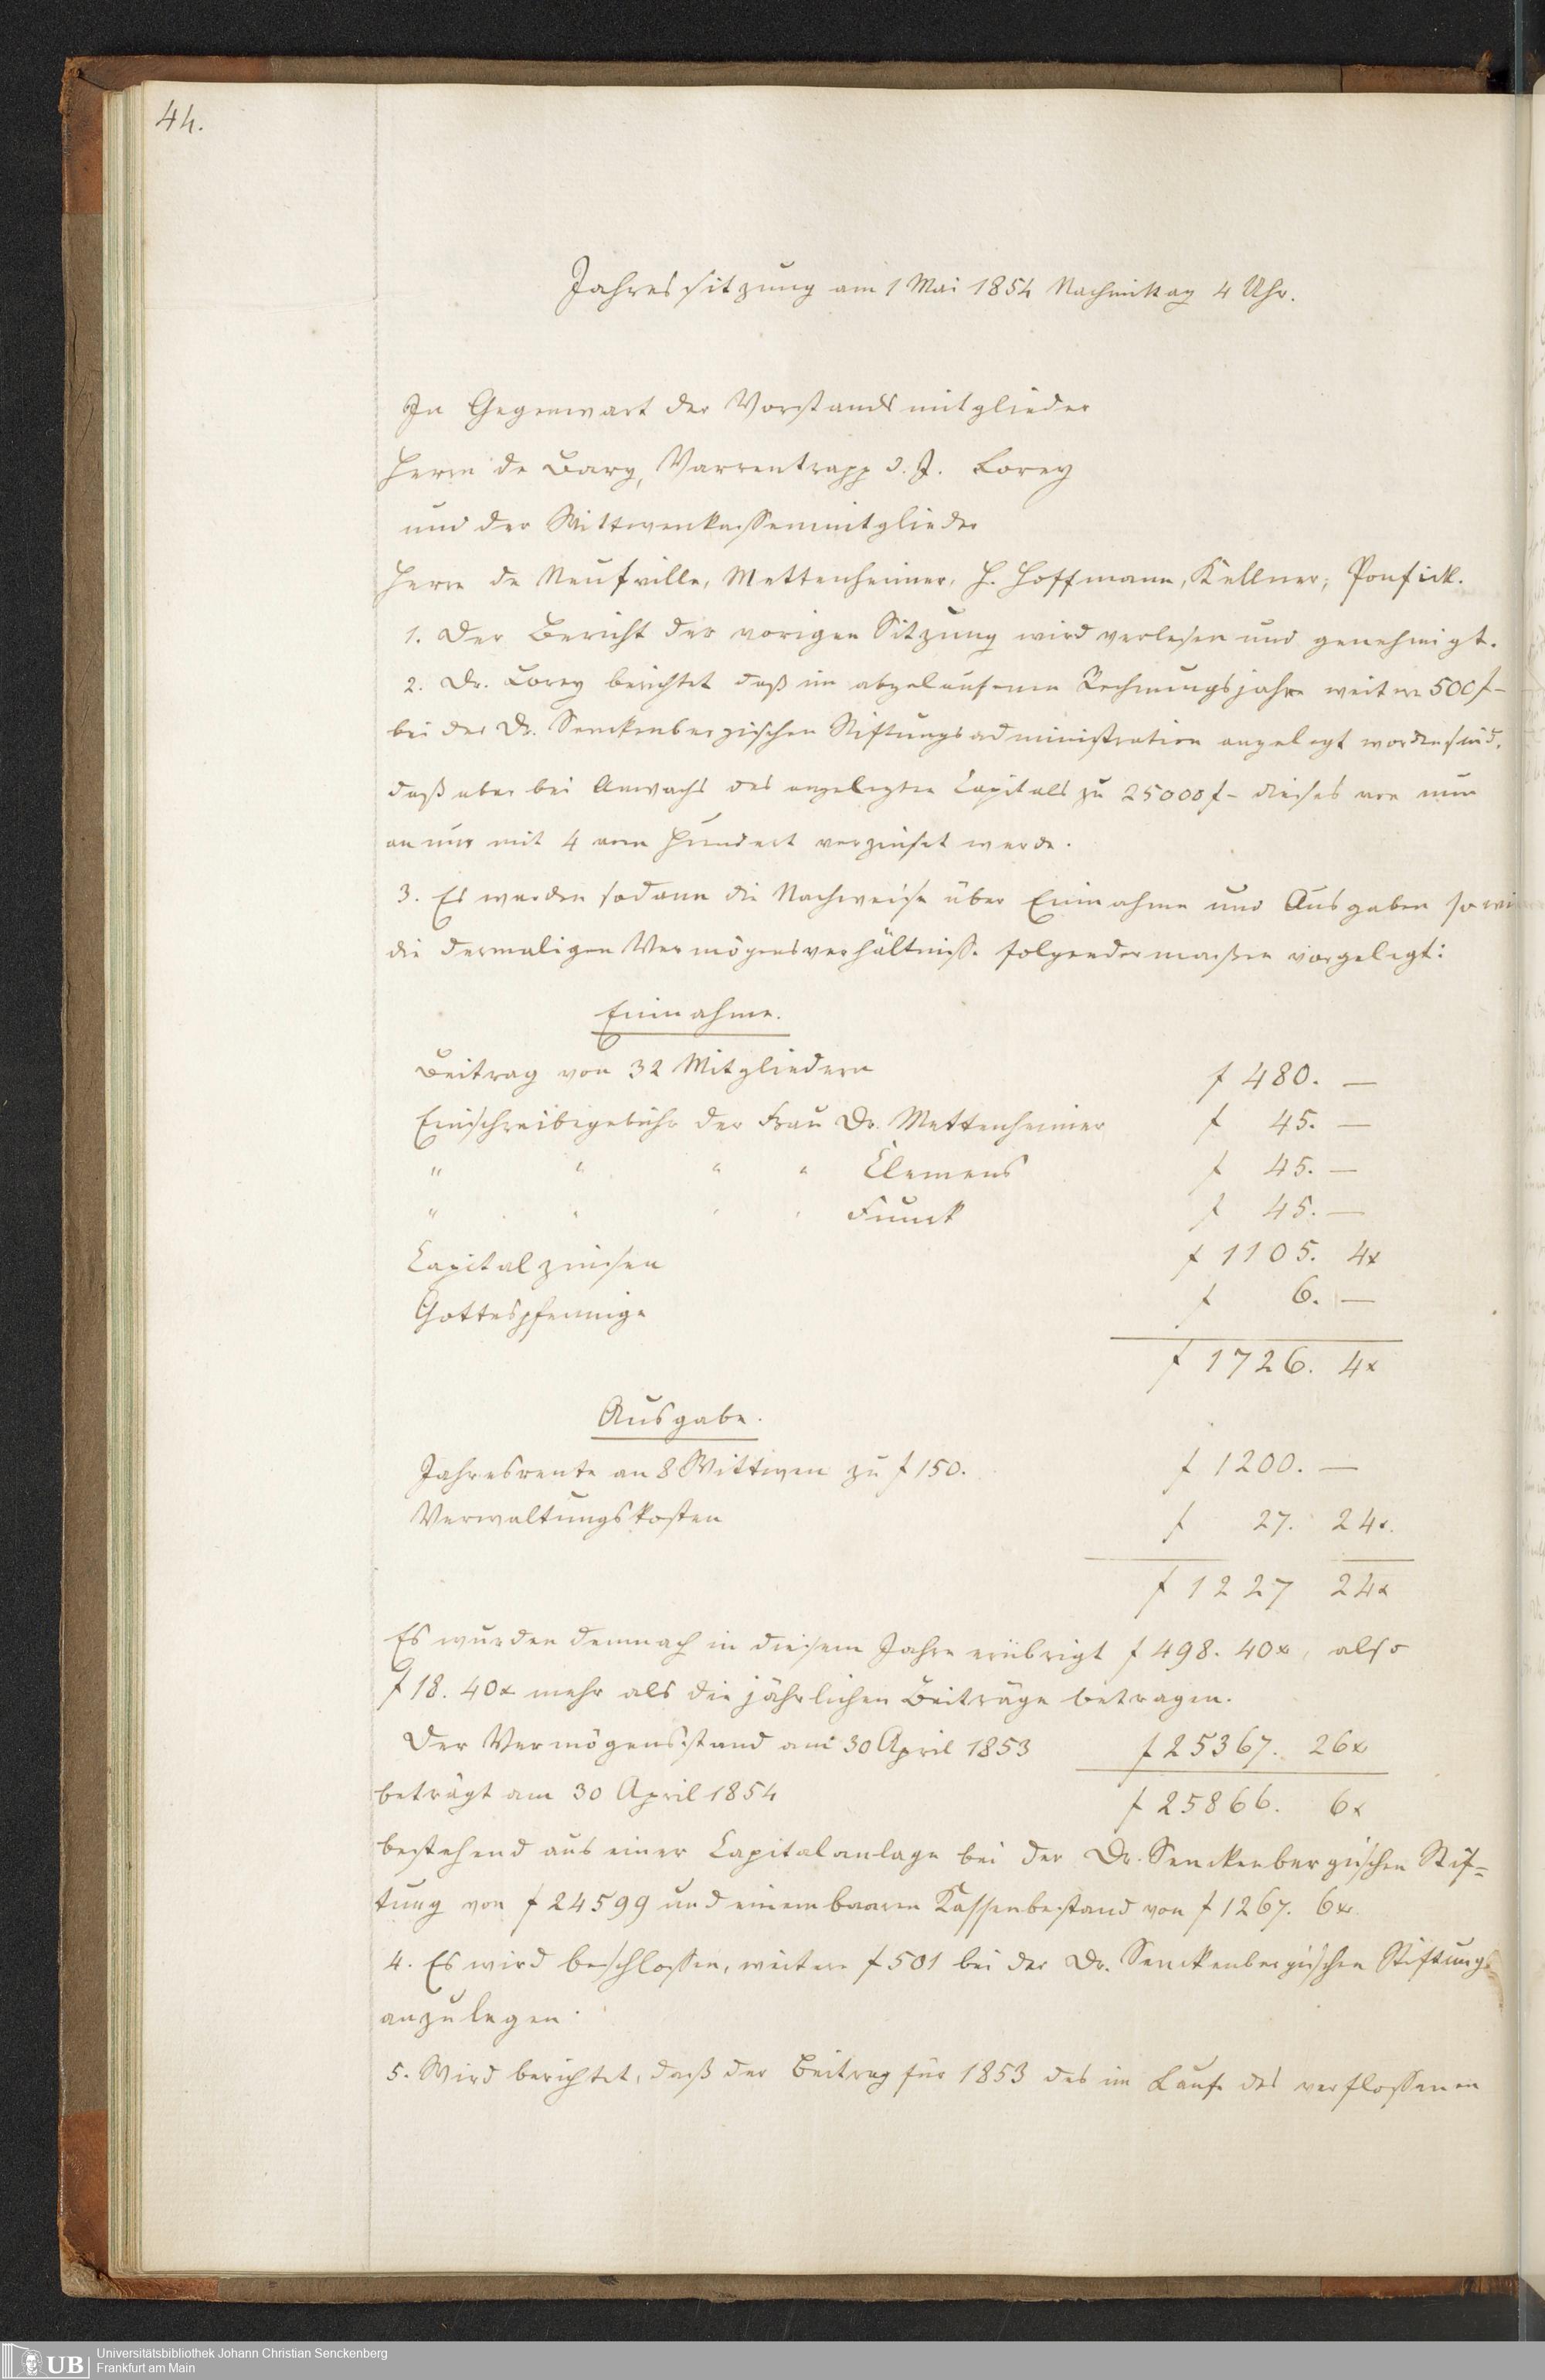 44.
Jahressitzung am 1 Mai 1854 Nachmittag 4 Uhr.
In Gegenwart der Vorstandsmitglieder
Herrn de Bary, Varrentrapp d. J. Lorey
und der Wittwenkassenmitglieder
Herrn de Neufville, Mettenheimer, H. Hoffmann, Kellner, Ponfick.
1. Der Bericht der vorigen Sitzung wird verlesen und genehmigt.
2. Dr. Lorey berichtet daß im abgelaufenen Rechnungsjahre weitere 500 f –
bei der Dr. Senckenbergischen Stiftungsadministration angelegt worden sind,
daß aber bei Anwachs des angelegten Capitals zu 25000 f – dieses von nun
an nur mit 4 vom Hundert verzinset werde.
3. Es wurden sodann die Nachweise über Einnahme und Ausgaben sowie
die dermaligen Vermögensverhältnisse folgendermaßen vorgelegt:
Einnahme.
Beitrag von 32 Mitgliedern f 480. —
Einschreibegebühr der Frau Dr. Mettenheimer f 45. —
" " " " Clemens f 45. —
" " " " Funck f 45. —
Capitalzinsen f 1105. 4x
Gottespfennige f 6. —
f 1726. 4x
Ausgabe.
Jahresrente an 8 Wittwen zu f 150. f 1200. —
Verwaltungskosten f 27. 24x.
f 1227 24x
Es wurden demnach in diesem Jahre erübrigt f 498. 40x, also
f 18. 40x mehr als die jährlichen Beiträge betragen.
Der Vermögensstand am 30 April 1853 f 25367. 26x
beträgt am 30 April 1854 f 25866. 6x
bestehend aus einer Capitalanlage bei der Dr. Senckenbergischen Stif=
tung von f 24599 und einem baaren Kassenbestand von f 1267. 6x.
4. Es wird beschlossen, weitere f 501 bei der Dr. Senckenbergischen Stiftungs=
anzulegen.
5. Wird berichtet, daß der Beitrag für 1853 des im Laufe des verflossenen
UB
Universitätsbibliothek Johann Christian Senckenberg
Frankfurt am Main